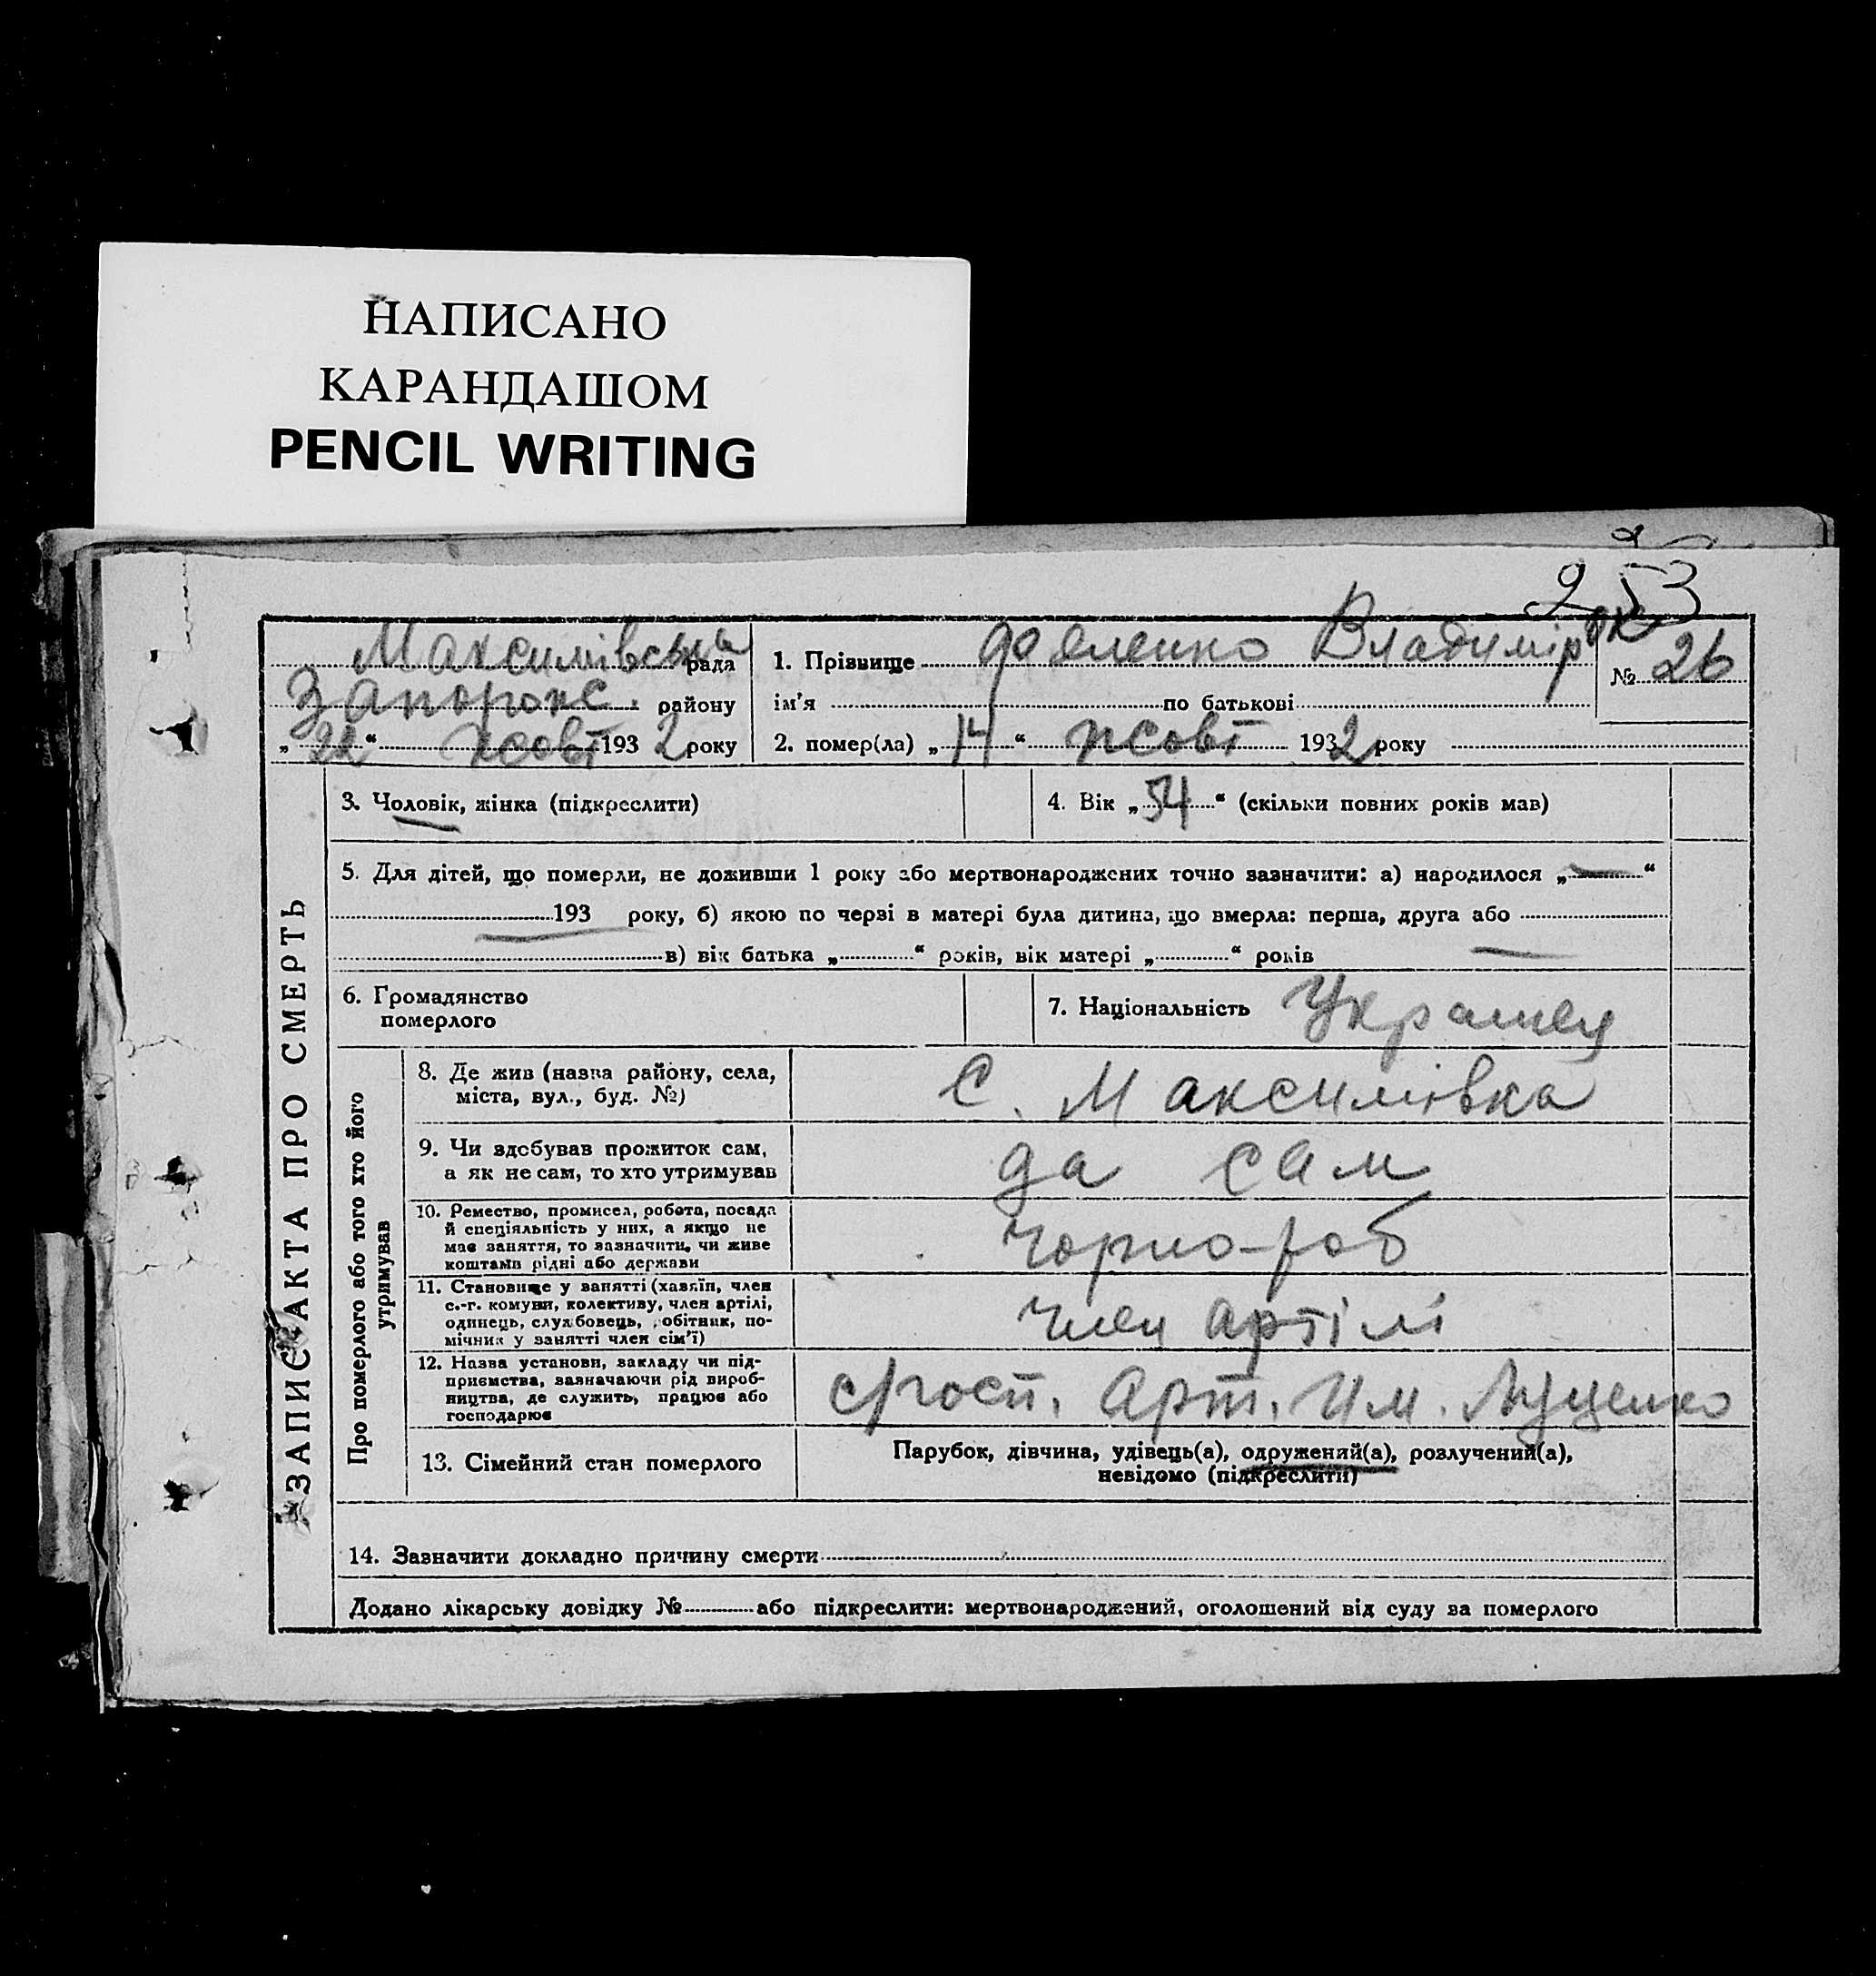 НАПИСАНО
КАРАНДАШОМ
PENCIL WRITING
253
Максимівська рада
Запорожс. району
„ 22 “ жовт 1932 року
1. Прізвище Владимір
№ 26
ім'я по батькові
2. помер(ла) „ 14 “ жовт 1932 року
ЗАПИС АКТА ПРО СМЕРТЬ
3. Чоловік, жінка (підкреслити)
4. Вік „ 54 “ (скільки повних років мав)
5. Для дітей, що померли, не доживши 1 року або мертвонароджених точно зазначити: а) народилося „ — “
193 року, б) якою по черзі в матері була дитина, що вмерла: перша, друга або
в) вік батька „ “ років, вік матері „ “ років
6. Громадянство
померлого
7. Національність Украинец
Про померлого або того хто його
утримував
8. Де жив (назва району, села,
міста, вул., буд. №)
С. Максимівка
9. Чи здобував прожиток сам,
а як не сам, то хто утримував
да сам
10. Ремество, промисел, робота, посада
й спеціяльність у них, а якщо не
має заняття, то зазначити, чи живе
коштами рідні або держави
Чорно-роб
11. Становище у занятті (хазяїн, член
с.-г. комуни, колективу, член артілі,
одинець, службовець, робітник, по-
мічник у занятті член сім'ї)
член артілі
12. Назва установи, закладу чи під-
приємства, зазначаючи рід вироб-
ництва, де служить, працює або
господарює
с/госп. Арт. Им. Луценко
13. Сімейний стан померлого
Парубок, дівчина, удівець(а), одружений(а), розлучений(а),
невідомо (підкреслити)
14. Зазначити докладно причину смерти
Додано лікарську довідку № або підкреслити: мертвонароджений, оголошений від суду за померлого